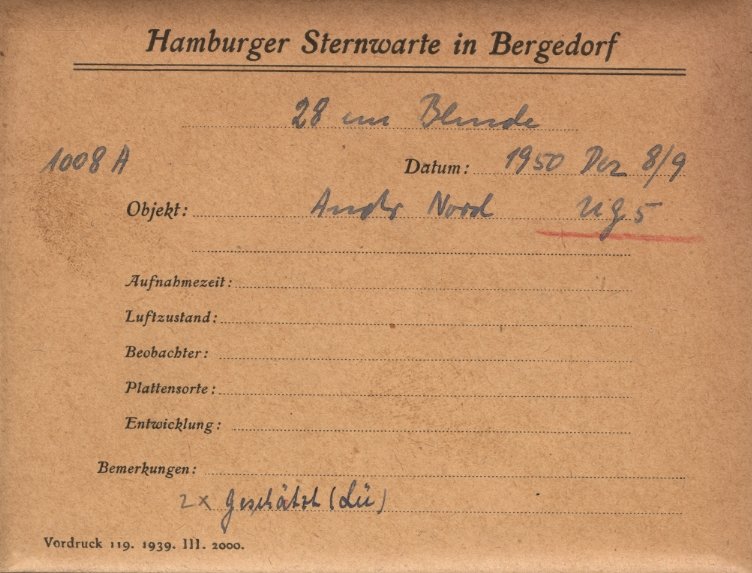 Hamburger Sternwarte in Bergedorf
28 cm Blende
1008 A Datum: 1950 Dez 8/9
Objekt: Andr Nord UG5
Aufnahmezeit:
Luftzustand:
Beobachter:
Plattensorte:
Entwicklung:
Bemerkungen:
2x geschätzt (Lü)
Vordruck 119. 1939. III. 2000.